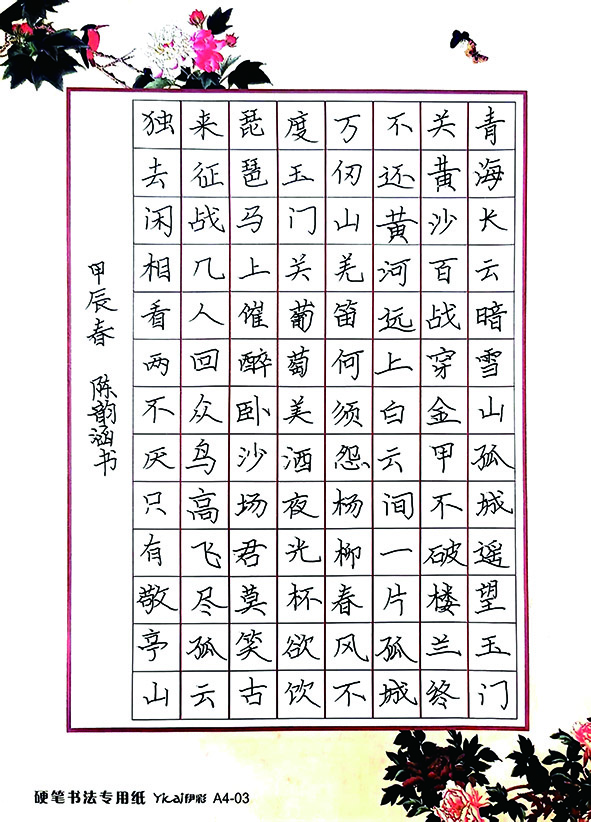 青海长云暗雪山孤城遥望玉门
关黄沙百战穿金甲不破楼兰终
不还黄河远上白云间一片孤城
万仞山羌笛何须怨杨柳春风不
度玉门关葡萄美酒夜光杯欲饮
琵琶马上催醉卧沙场君莫笑古
来征战几人回众鸟高飞尽孤云
独去闲相看两不厌只有敬亭山
甲辰春 陈韵涵书
硬笔书法专用纸 Yicai伊彩 A4-03